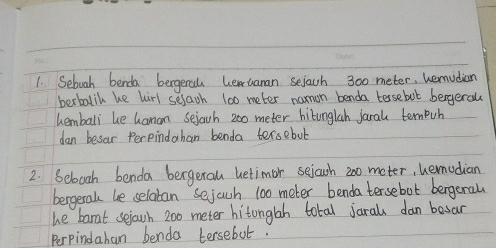 1. Sebuah benda bergerak ke kanan sejauh 300 meter, kemudian
berbalik ke kiri sejauh 100 meter namun benda tersebut bergerak
kembali ke kanan sejauh 200 meter hitunglah jarak tempuh
dan besar Perpindahan benda tersebut
2. Sebuah benda bergerak ketimur sejauh 200 meter, kemudian
bergerak ke selatan sejauh 100 meter benda tersebut bergerak
ke barat sejauh 200 meter hitunglah total jarak dan besar
Perpindahan benda tersebut.